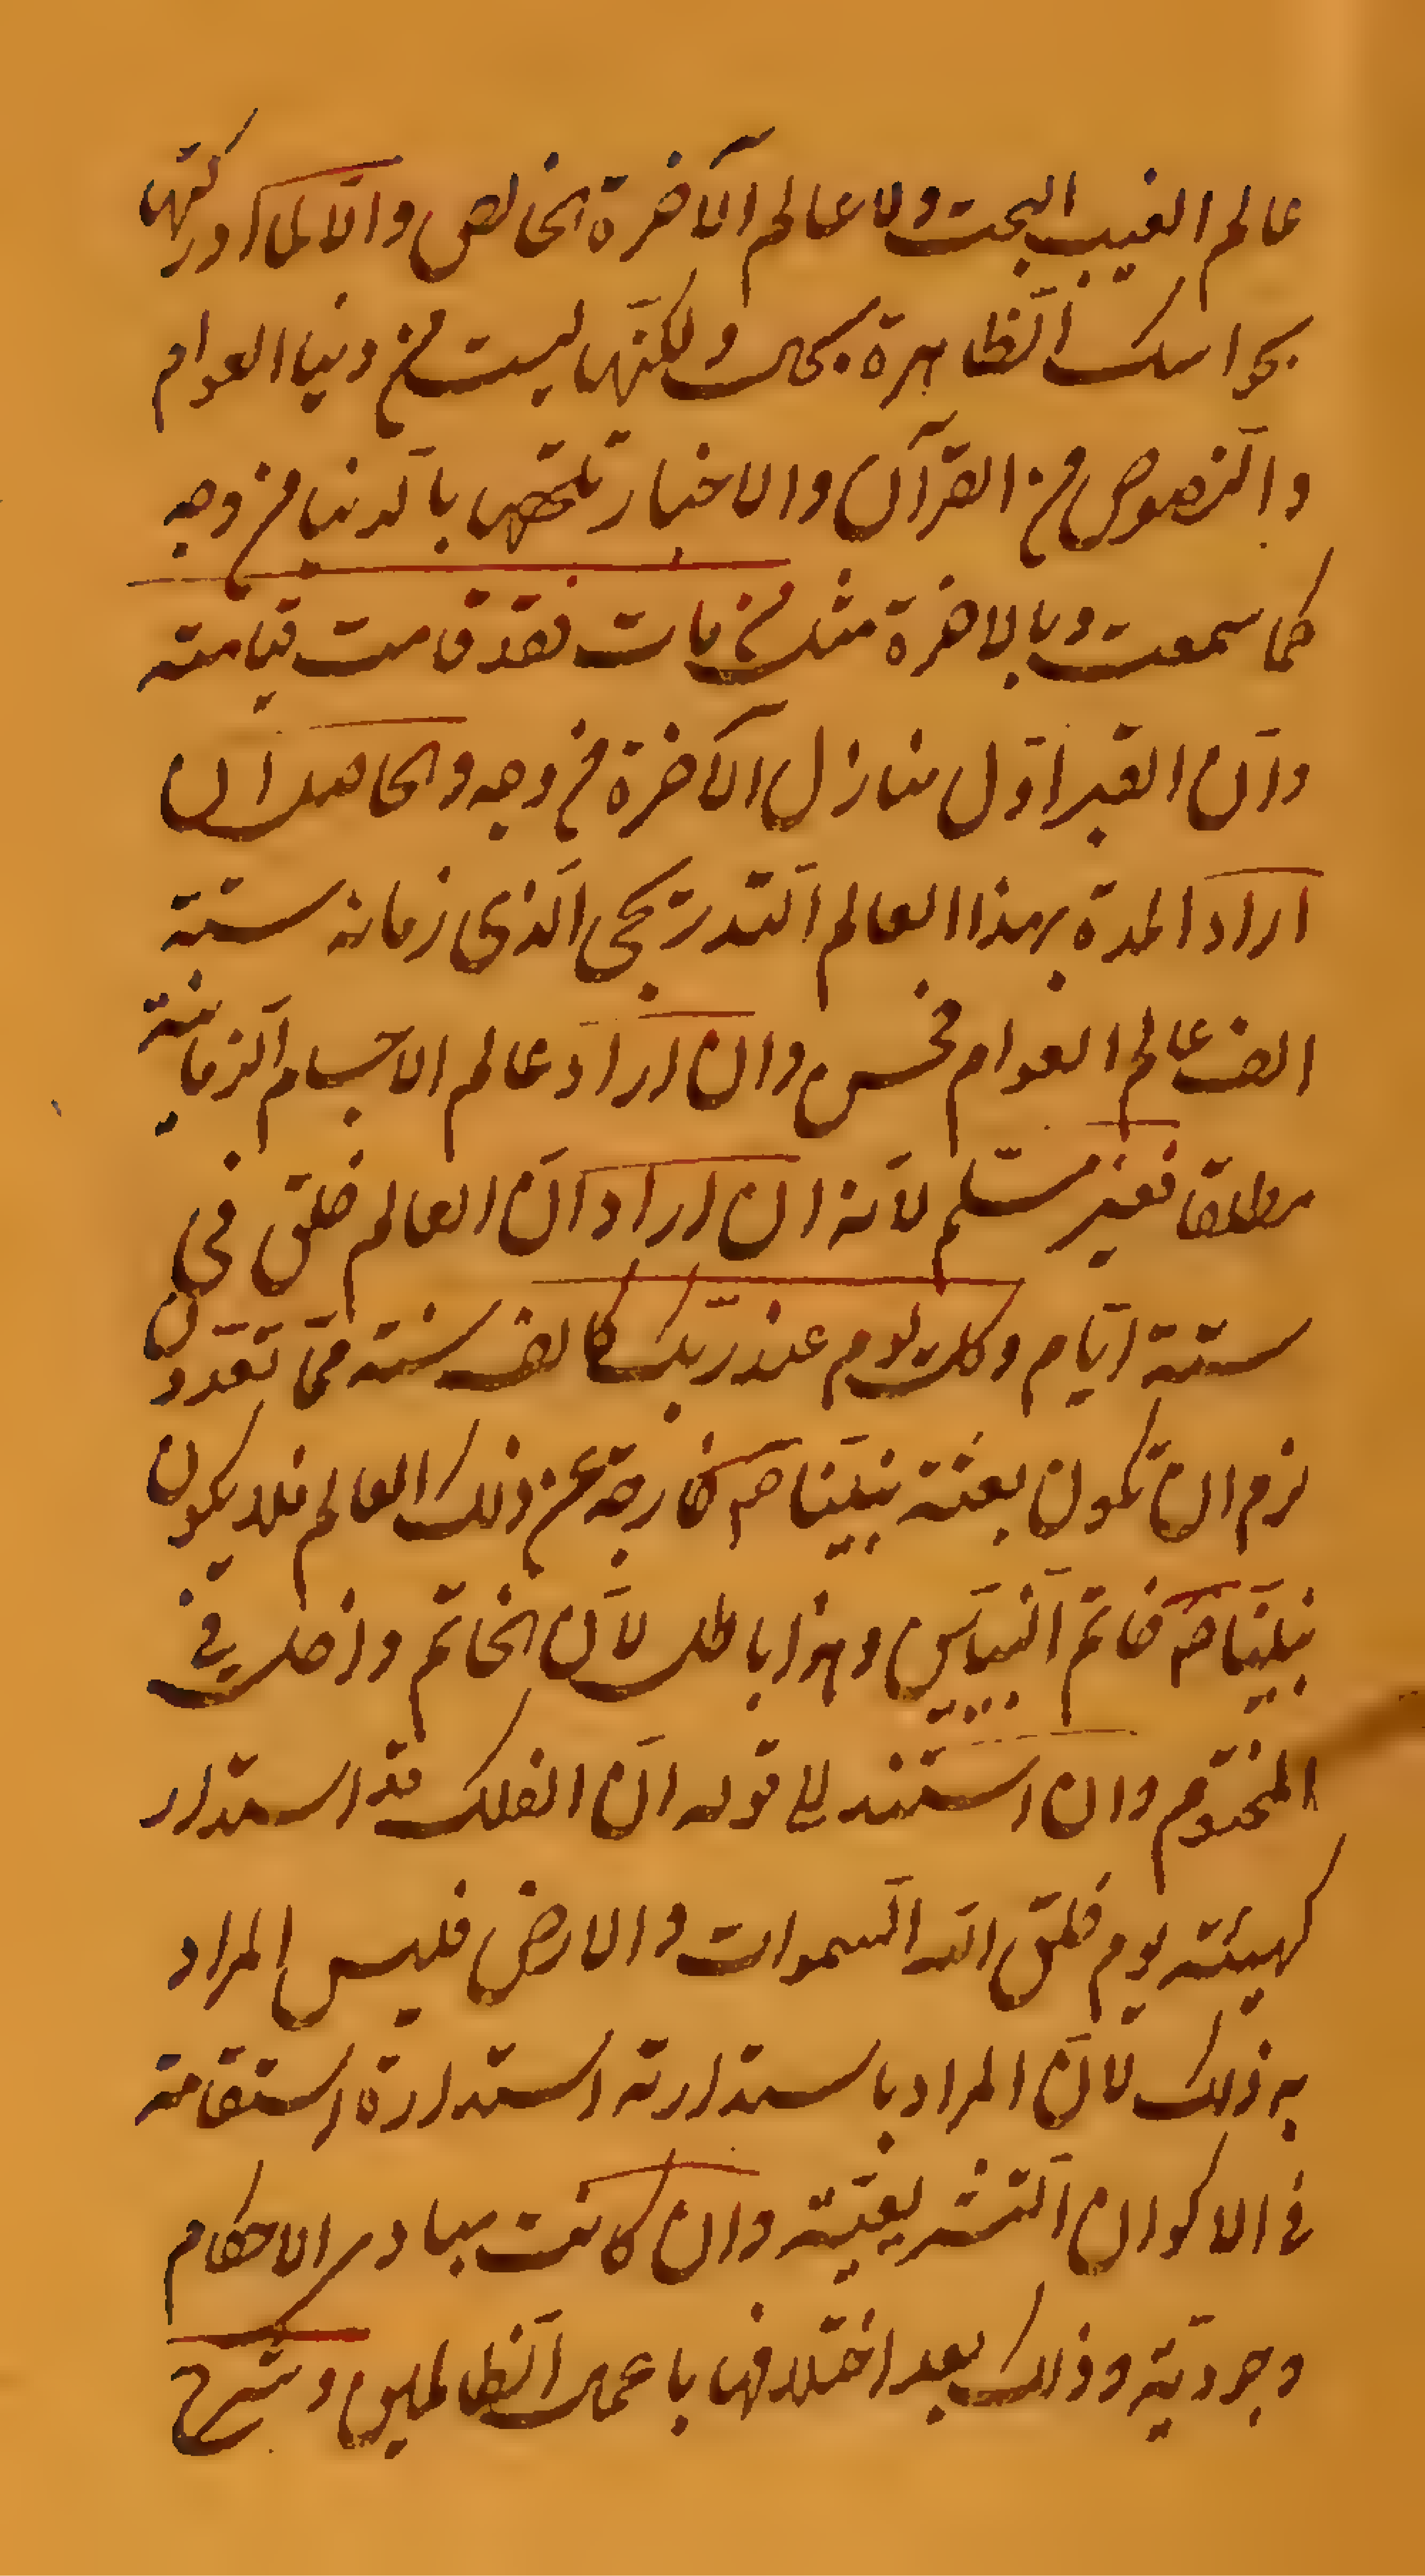 عالم الغيب البحت ولا عالم الآخرة الخالص والّا لما ادركتها
بحواسك الظاهرة بحال ولكنّها ليست من دنيا العوام
والنّصوص من القرآن والاخبار تلحقها بالدّنيا من وجه
كما سمعت وبالاخرة مثل من مات فقد قامت قيامته
وانّ القبر اوّل منازل الآخرة من وجه والحاصل ان
اراد المدة بهذا العالم التّدريجي الّذي زمانه ستة
الف عالم العوام فحسن وان اراد عالم الاجسام الزّمانية
مطلقا فغير مسلّم لانّه ان اراد انّ العالم خلق في
ستة ايّام وكل يوم عند ربّك كالف سنة ممّا تعدّون
لزم ان تكون بعثة نبيّنا ص خارجة عن ذلك العالم فلا يكون
نبيّنا ص خاتم النّبيّين وهذا باطل لانّ الخاتم داخل في
المختوم وان استند الى قوله انّ الفلك قد استدار
كهيئته يوم خلق اللّه السّموات والارض فليس المراد
به ذلك لانّ المراد باستدارته استدارة استقامة
في الاكوان التّشريعيّة وان كانت مبادى الاحكام
وجوديّة وذلك بعد اختلافها باعمال الظّالمين وشرح